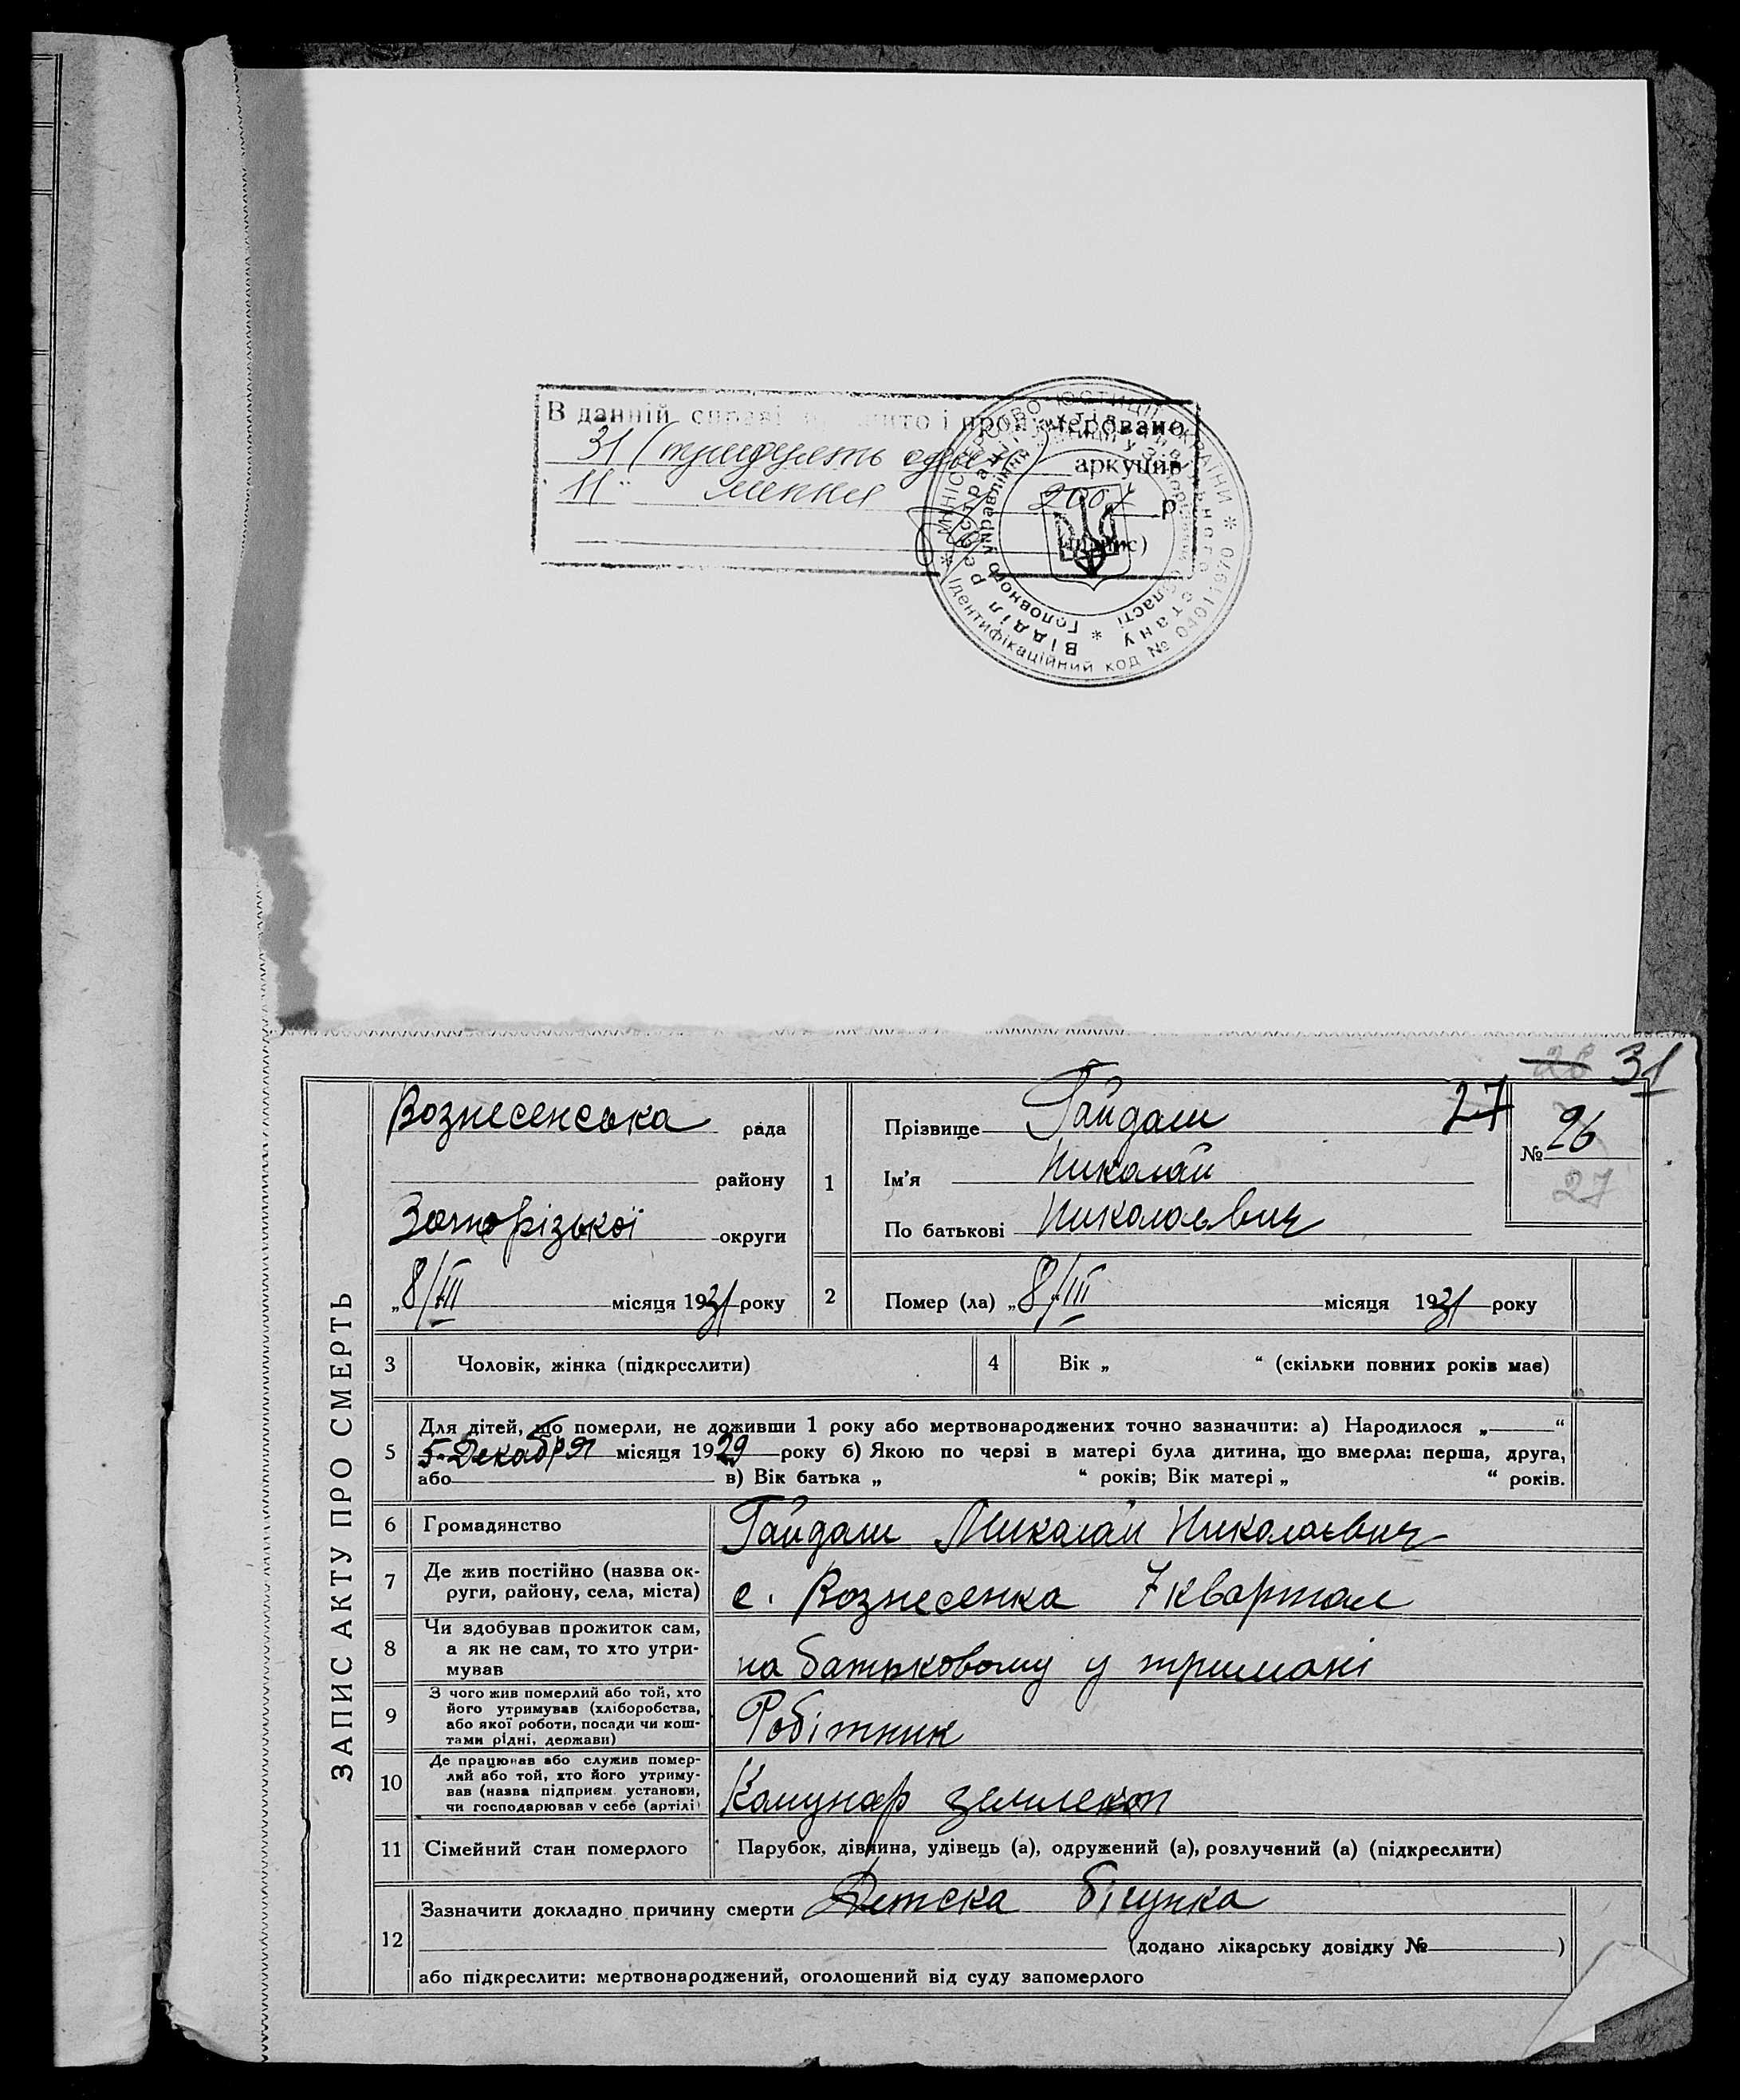 В данній справі прошито і пронумеровано
31 (тридцять один) аркушів
"11" липня 2007 р.
(підпис)
МІНІСТЕРСТВО ЮСТИЦІЇ УКРАЇНИ * Ідентифікаційний код №
Відділ реєстрації актів цивільного стану *
Головного управління юстиції у Запорізькій області
28 31
27
№ 26
27
ЗАПИС АКТУ ПРО СМЕРТЬ
Вознесенська рада
району
Запорізької округи
„8/III місяця 1931 року
1 Прізвище Гайдаш
Ім'я Николай
По батькові Николаевич
2 Помер (ла) „8/III місяця 1931 року
3 Чоловік, жінка (підкреслити)
4 Вік „ “ (скільки повних років має)
5 Для дітей, що померли, не доживши 1 року або мертвонароджених точно зазначити: а) Народилося „ “
5. Декабря місяця 1929 року б) Якою по черзі в матері була дитина, що вмерла: перша, друга,
або в) Вік батька „ “ років; Вік матері „ “ років.
6 Громадянство Гайдаш Микалай Николаевич
7 Де жив постійно (назва ок-
руги, району, села, міста) с. Вознесенка 7 квартал
8 Чи здобував прожиток сам,
а як не сам, то хто утри-
мував на батьковому у тримані
9 З чого жив померлий або той, хто
його утримував (хліборобства,
або якої роботи, посади чи кош-
тами рідні, держави) Робітник
10 Де працював або служив помер-
лий або той, хто його утриму-
вав (назва підприєм. установи,
чи господарював у себе (артілі) Комунар землекоп
11 Сімейний стан померлого Парубок, дівчина, удівець (а), одружений (а), розлучений (а) (підкреслити)
12 Зазначити докладно причину смерти Детска бігунка
(додано лікарську довідку № )
або підкреслити: мертвонароджений, оголошений від суду запомерлого